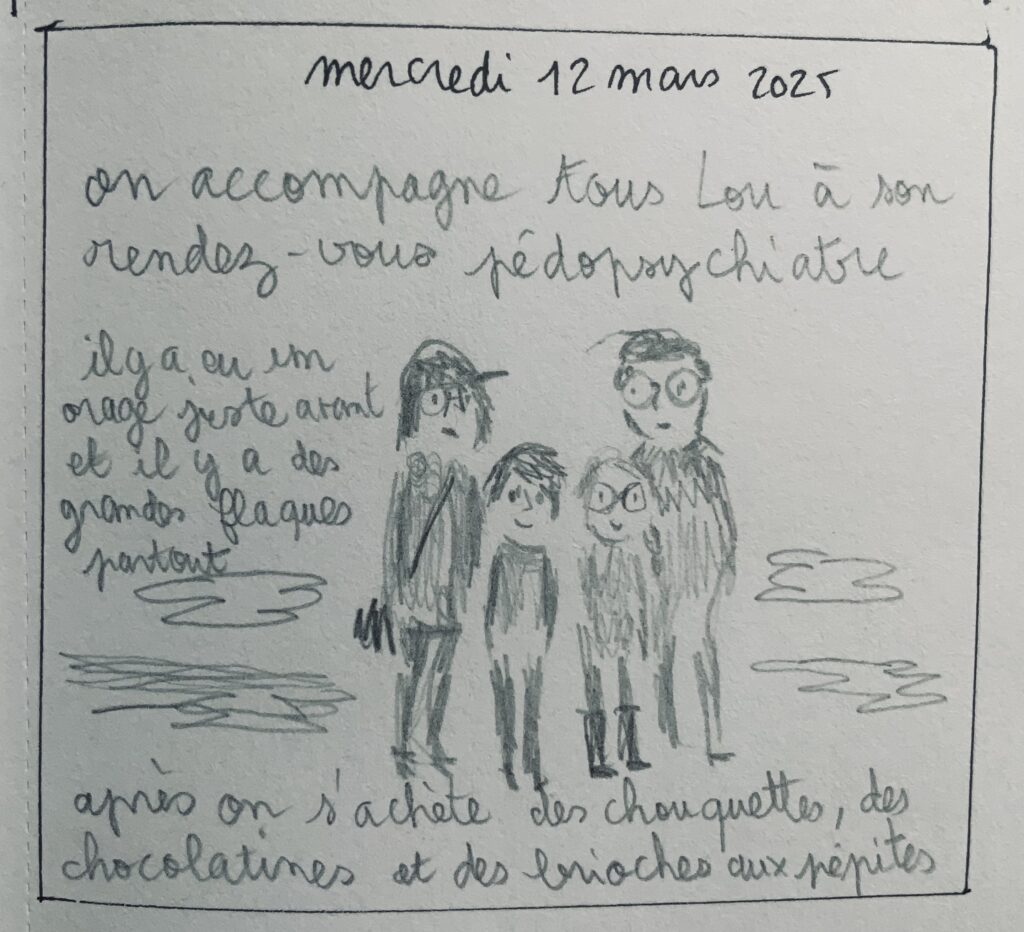 mercredi 12 mars 2025
on accompagne tous Lou à son
rendez-vous pédopsychiatre
il y a eu un
orage juste avant
et il y a des
grandes flaques
partout
après on s'achète des chouquettes, des
chocolatines et des brioches aux pépites